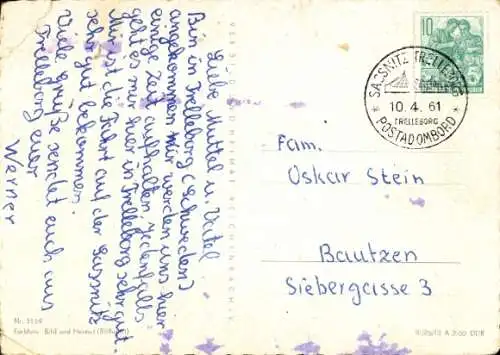 Liebe Muttel u. Vatel
Bin in Trelleborg (Schweden)
angekommen mir werden uns hier
einige Zeit aufhalten, Jedenfalls
geht es mir hier in Trelleborg sehr gut.
Mir ist die Fahrt auf der Sassnitz
sehr gut bekommen.
Viele grüße sendet euch aus
Trelleborg euer
Werner
10
SASSNITZ-TRELLEBORG
10.4.61
TRELLEBORG
POSTADOMBORD
Fam.
Oskar Stein
Bautzen
Siebergasse 3
VERLAG BILD UND HEIMAT REICHENBACH
Bild und Heimat
DDR